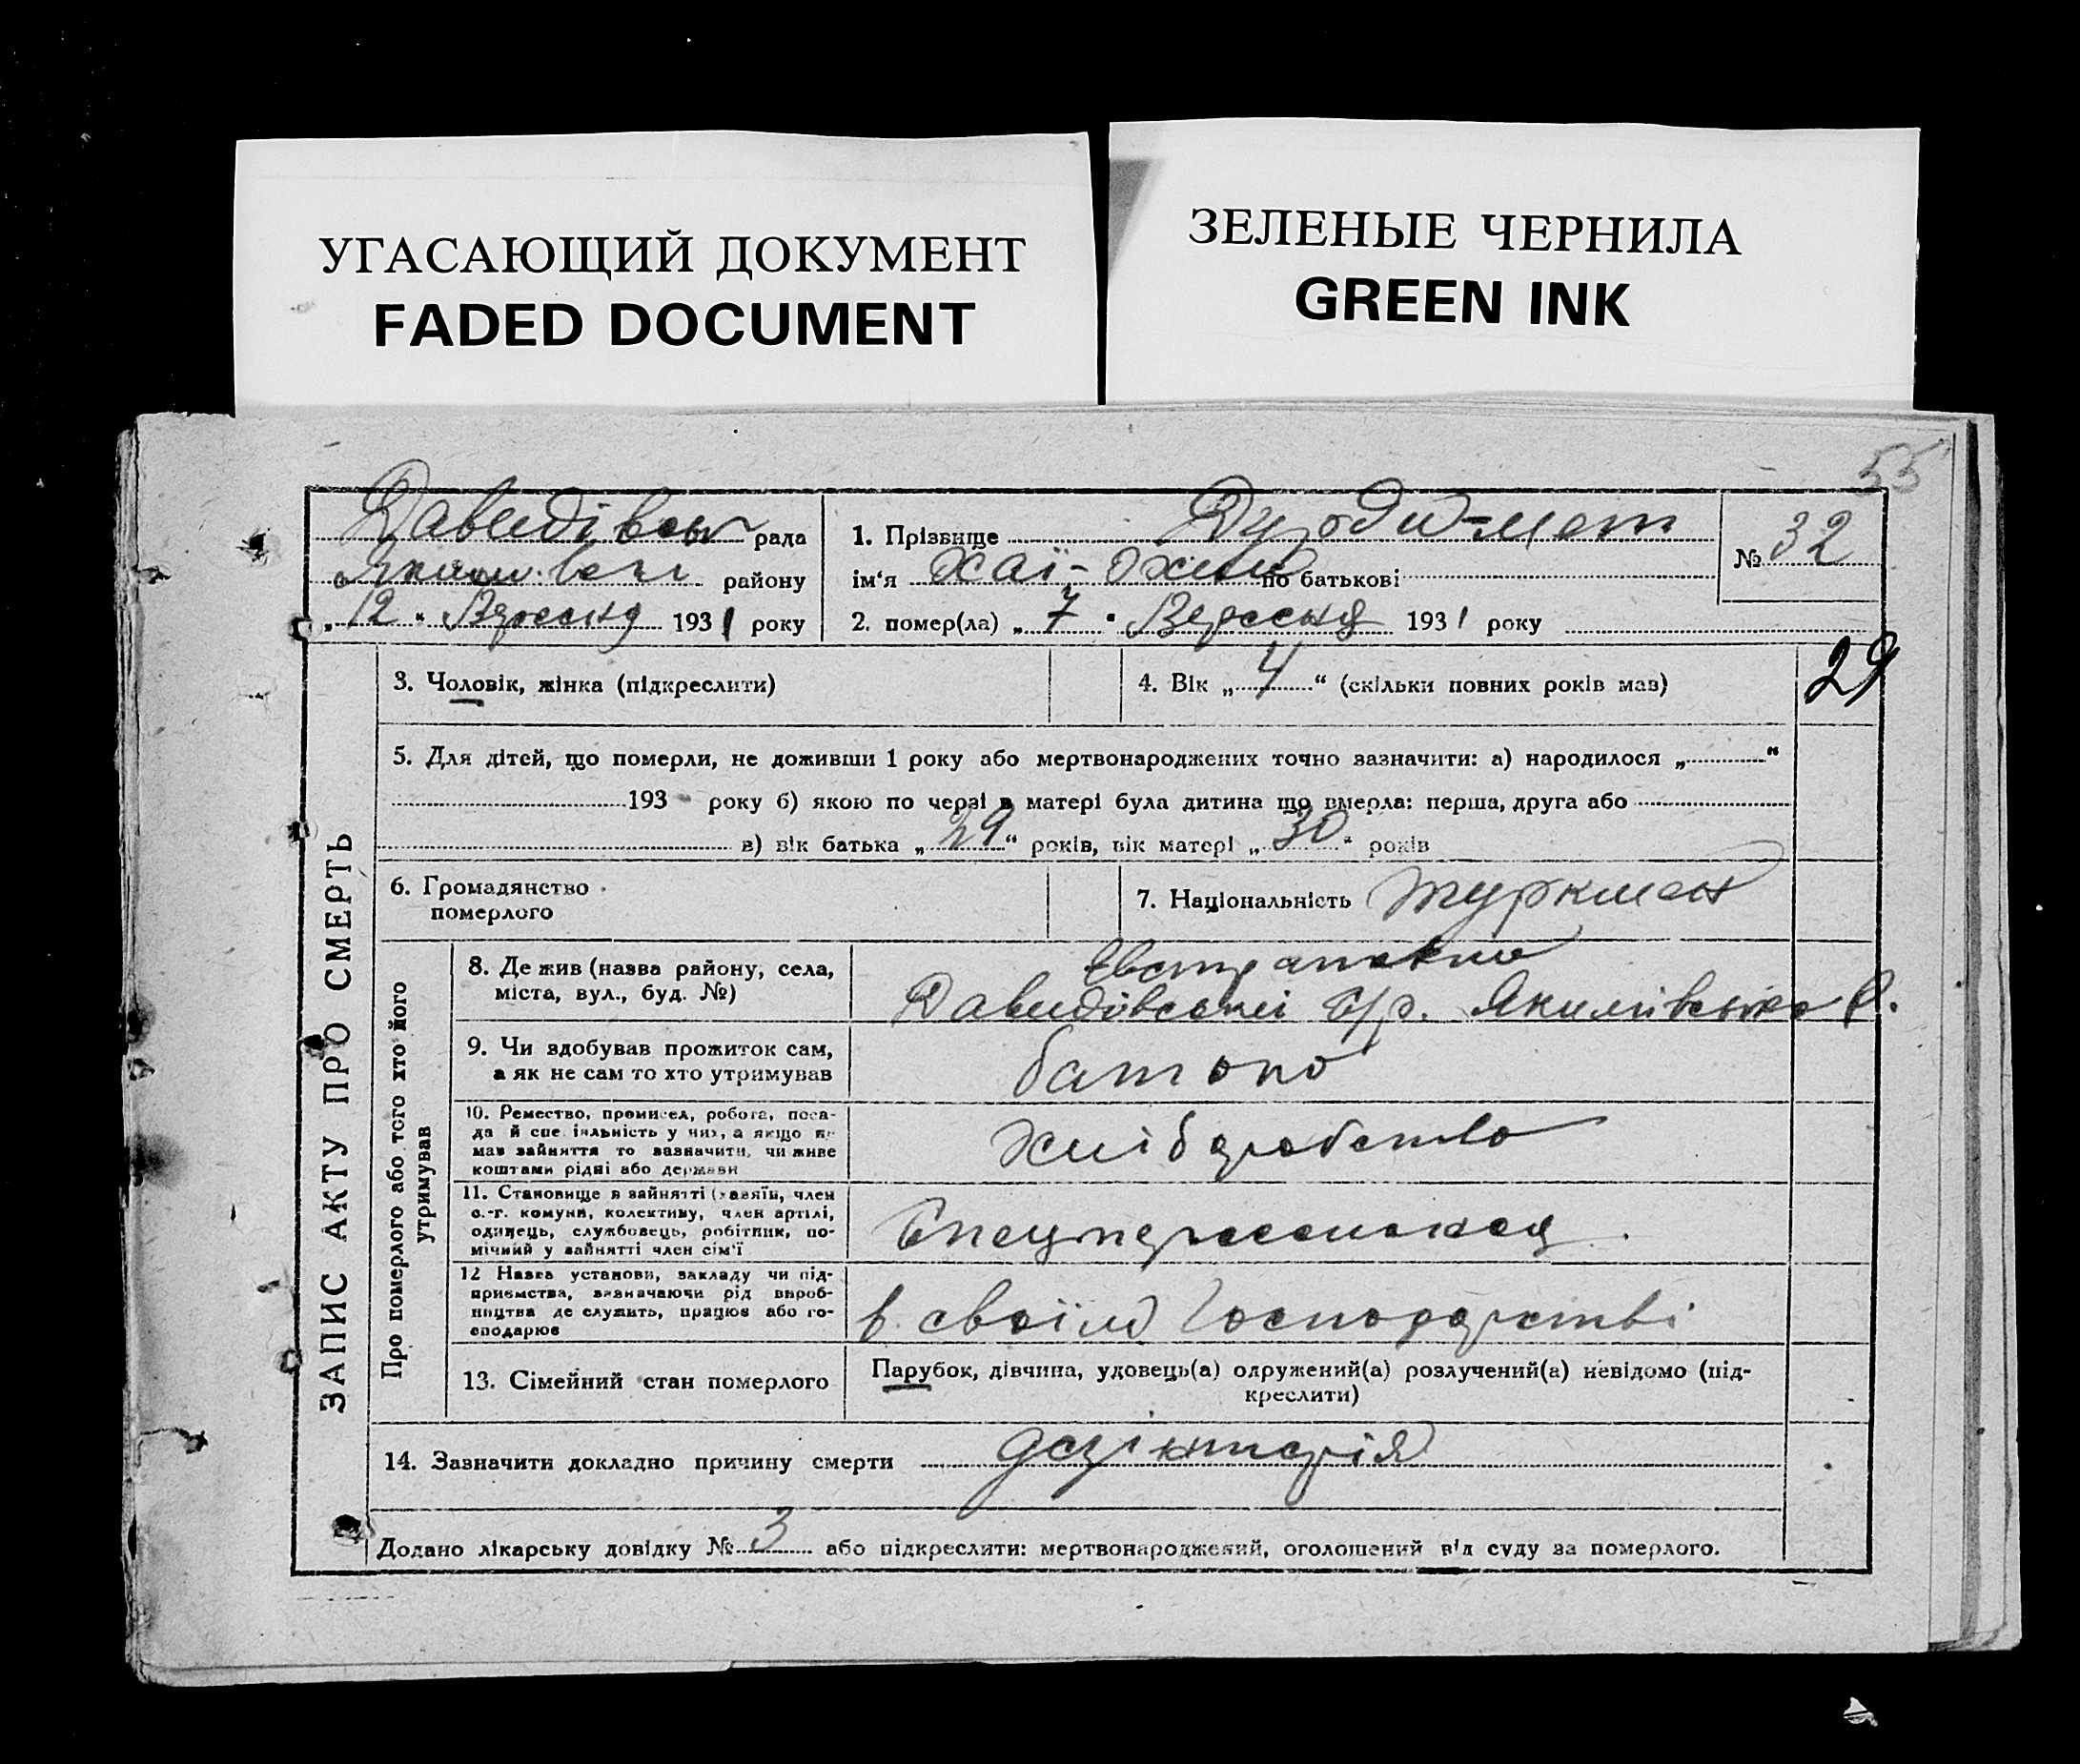 УГАСАЮЩИЙ ДОКУМЕНТ
FADED DOCUMENT
ЗЕЛЕНЫЕ ЧЕРНИЛА
GREEN INK
55
Давидівськ рада
району
„12“ Вересня 1931 року
1. Прізвище
ім‘я по батькові
2. помер(ла) „7“ Вересня 1931 року
№ 32
ЗАПИС АКТУ ПРО СМЕРТЬ
3. Чоловік, жінка (підкреслити)
4. Вік „4“ (скільки повних років мав)
29
5. Для дітей, що померли, не доживши 1 року або мертвонароджених точно зазначити: а) народилося „ “
193 року б) якою по черзі в матері була дитина що вмерла: перша, друга або
в) вік батька „29“ років, вік матері „30“ років
6. Громадянство
померлого
7. Національність туркмен
Про померлого або того хто його
утримував
8. Де жив (назва району, села,
міста, вул., буд. №)
Давидівської с/р. Якимівсько р.
9. Чи здобував прожиток сам,
а як не сам то хто утримував
батько
10. Ремество, промисел, робота, поса-
да й спеціяльність у них, а якщо не
мав зайняття то зазначити, чи живе
коштами рідні або держави
хліборобство
11. Становище в зайнятті (хазяїн, член
с.-г. комуни, колективу, член артілі,
одинець, службовець, робітник, по-
мічний у зайнятті член сім'ї
12 Назва установи, закладу чи під-
приємства, зазначаючи рід вироб-
ництва де служить, працює або го-
сподарює
в своїм господарстві
13. Сімейний стан померлого
Парубок, дівчина, удовець(а) одружений(а) розлучений(а) невідомо (під-
креслити)
14. Зазначити докладно причину смерти
Додано лікарську довідку № 3 або підкреслити: мертвонароджений, оголошений від суду за померлого.